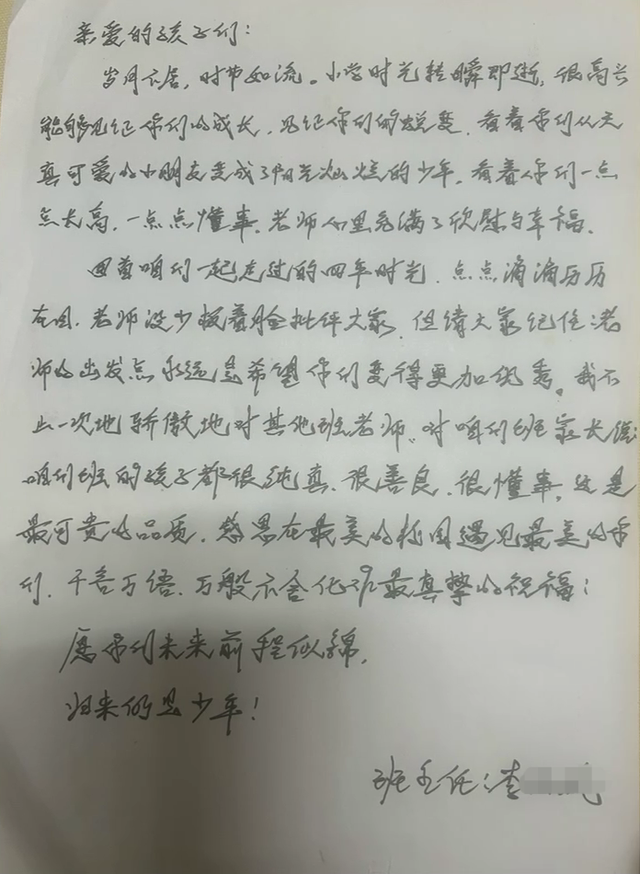 亲爱的孩子们：
岁月不居，时节如流。小学时光转瞬即逝，很高兴
能够见证你们的成长，见证你们的蜕变，看着你们从天
真可爱的小朋友变成了阳光灿烂的少年，看着你们一点
点长高，一点点懂事，老师心里充满了欣慰与幸福。
回首咱们一起走过的四年时光，点点滴滴历历
在目，老师没少板着脸批评大家，但请大家记住：老
师的出发点永远是希望你们变得更加优秀。我不
止一次地骄傲地对其他班老师、对咱们班家长
咱们班的孩子都很纯真、很善良、很懂事，这是
最可贵的品质，感恩在最美的校园遇见最美的你
们，千言万语、万般不舍化作最真挚的祝福：
愿你们未来前程似锦，
归来仍是少年！
班主任：李